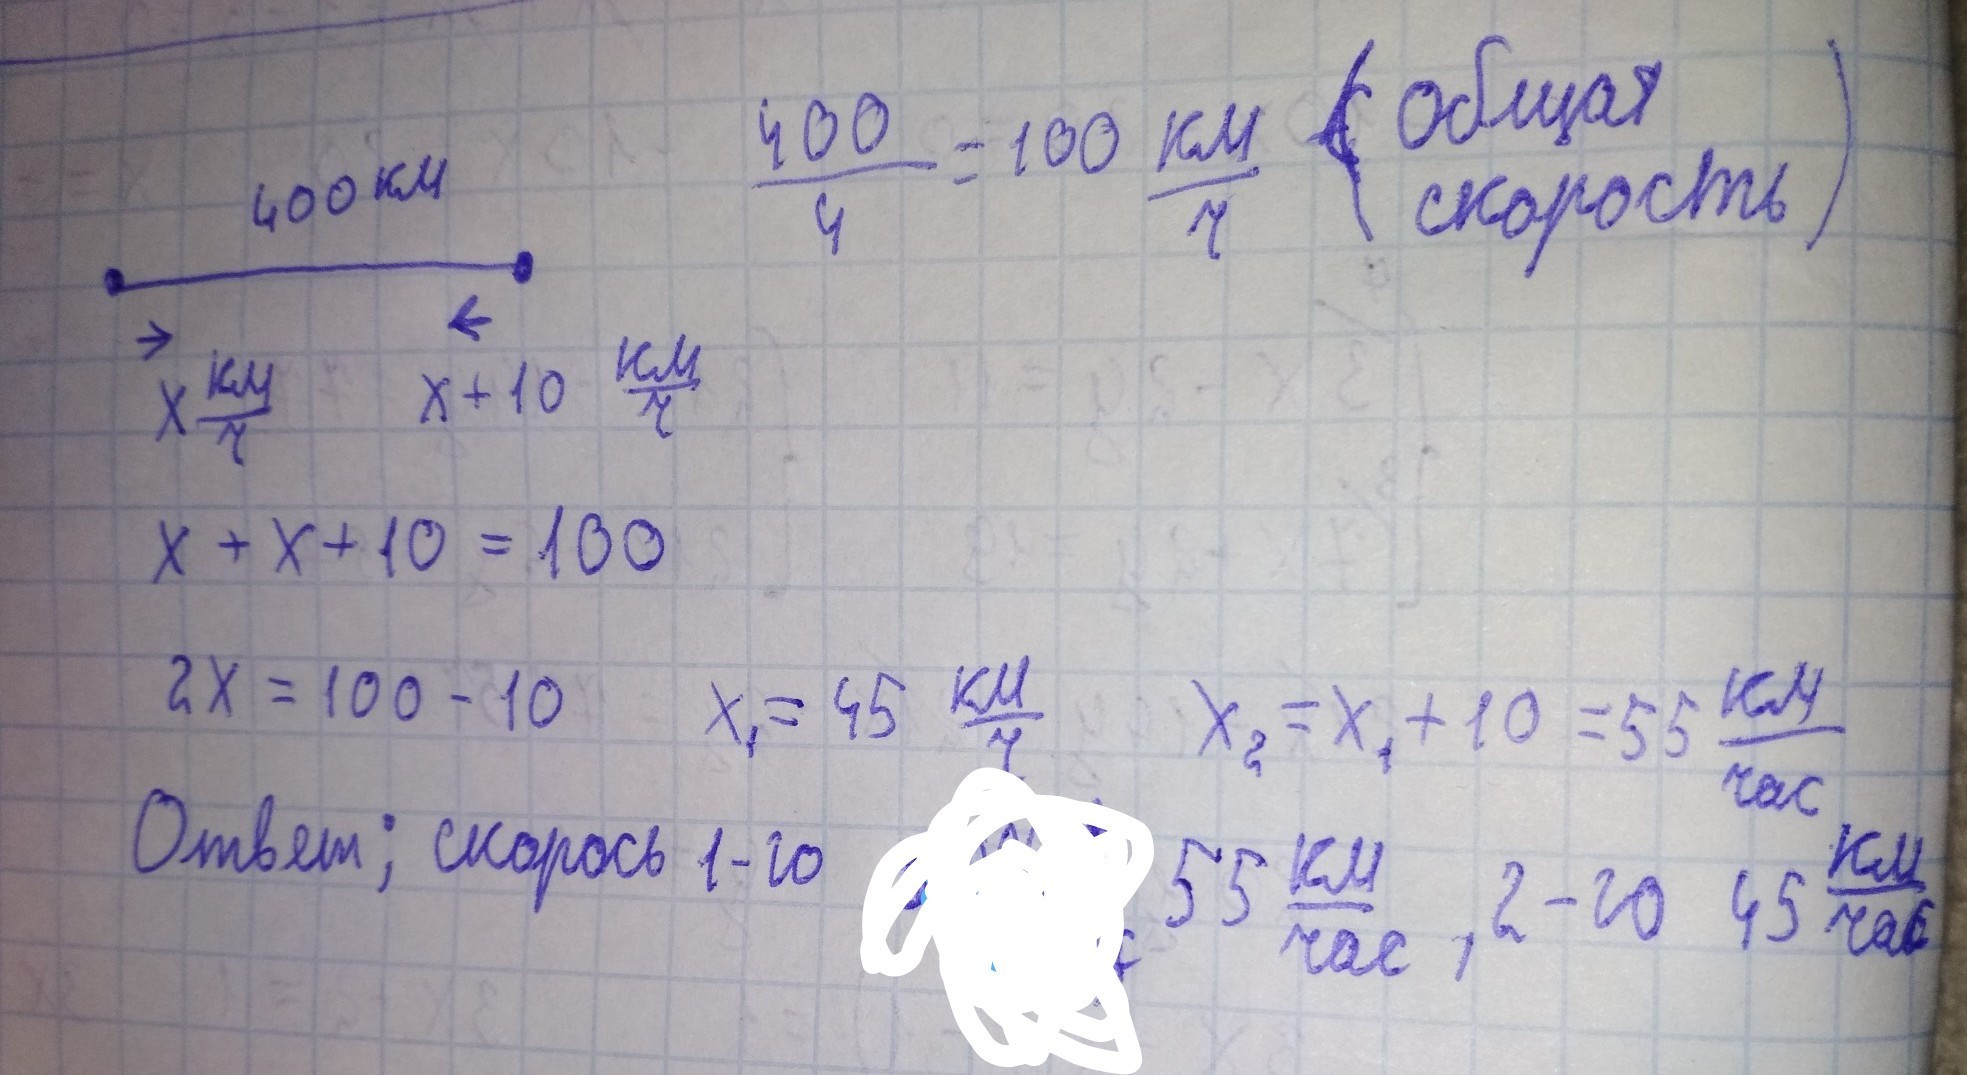 400 км
400/4 = 100 км/ч (общая скорость)
x км/ч x+10 км/ч
x + x + 10 = 100
2x = 100 - 10 x₁ = 45 км/ч x₂ = x₁ + 10 = 55 км/час
Ответ; скорось 1-го 55 км/час, 2-го 45 км/час